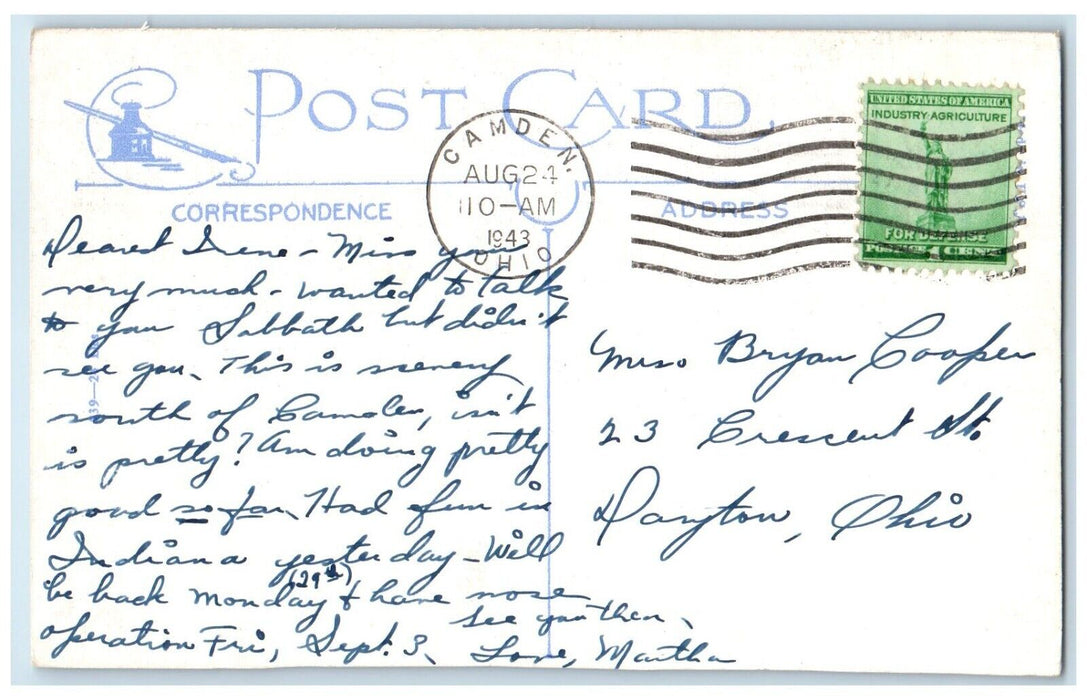 POST CARD.
CAMDEN.
AUG 24
10-AM
1943
OHIO
UNITED STATES OF AMERICA
INDUSTRY AGRICULTURE
FOR DEFENSE
CORRESPONDENCE
ADDRESS
Dearest Irene - Miss you
very much - wanted to talk
to you Sabbath but didn't
see you. This is scenery
south of Camden, isn't
is pretty? Am doing pretty
good so far. Had fun in
Indiana yesterday - Will
be back Monday (29th) & have nose
operation Fri, Sept. 3.
see you then.
Love, Martha
Miss Bryan Cooper
23 Crescent St.
Dayton, Ohio